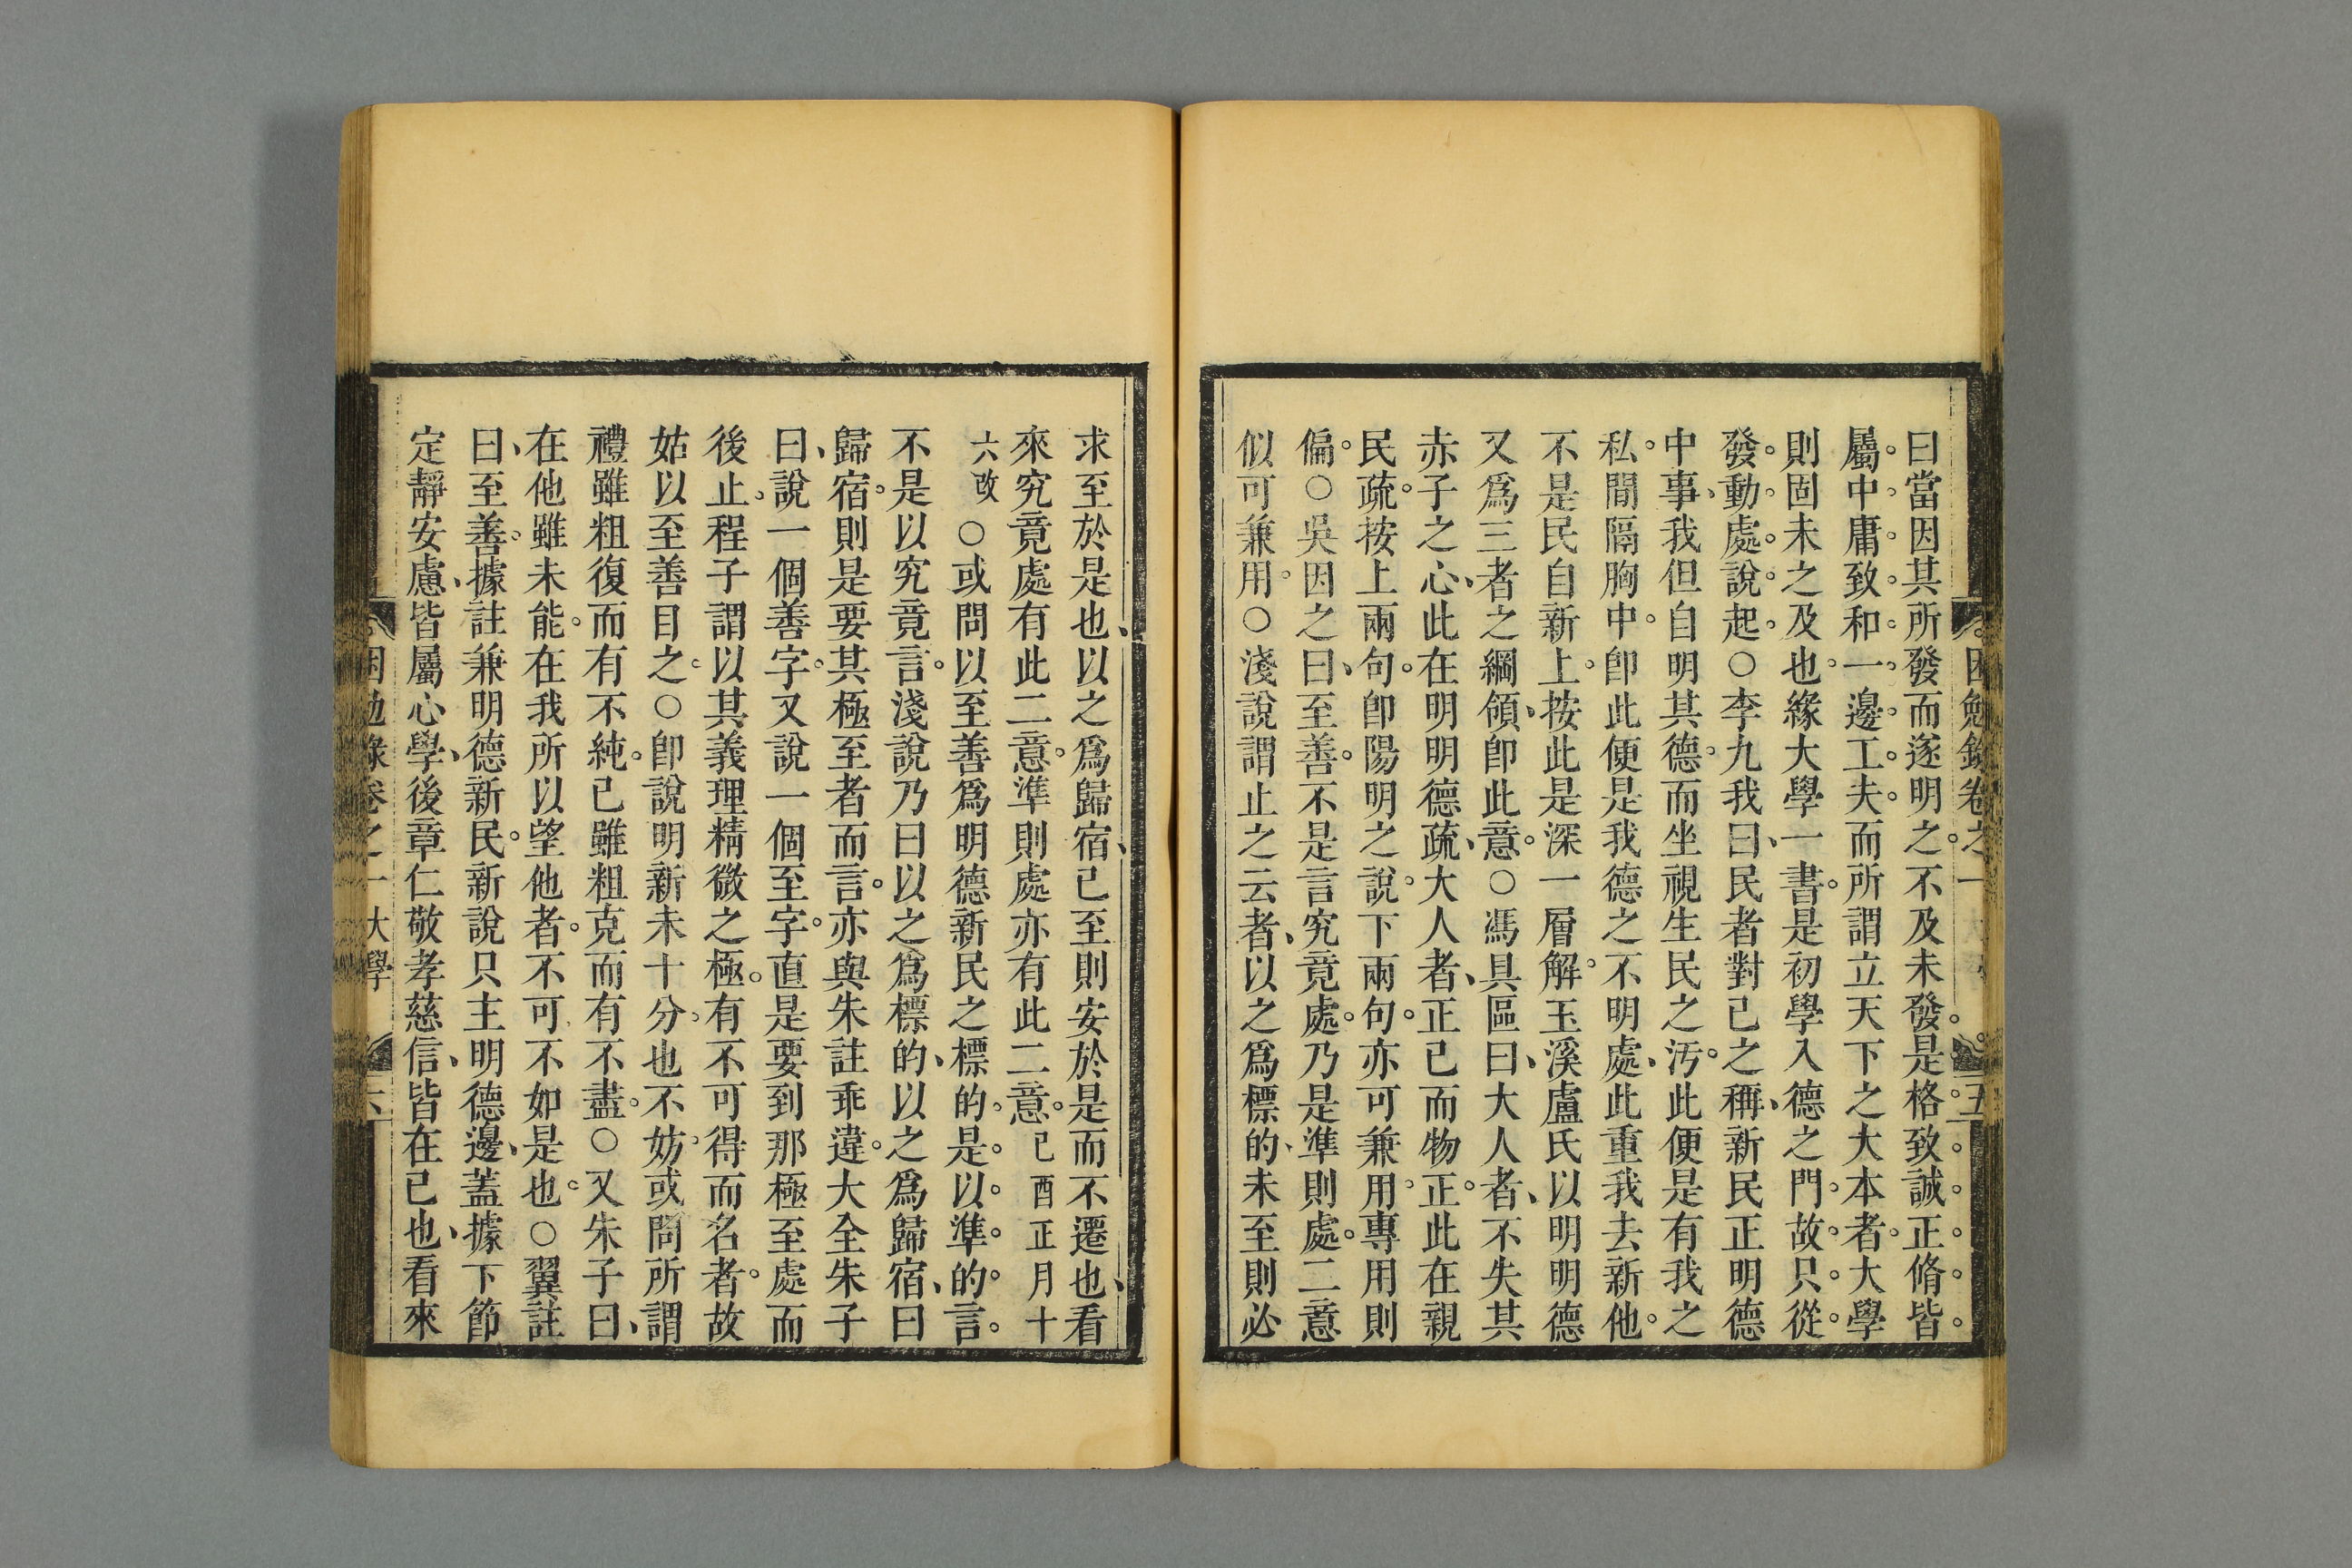 曰當因其所發而遂明之不及未發是格致誠正脩皆
屬中庸致和一邊工夫而所謂立天下之大本者大學
則固未之及也緣大學一書是初學入德之門故只從
發動處說起○李九我曰民者對己之稱新民正明德
中事我但自明其德而坐視生民之汚此便是有我之
私間隔胸中卽此便是我德之不明處此重我去新他
不是民自新上按此是深一層解玉溪盧氏以明明德
又爲三者之綱領卽此意○馮具區曰大人者不失其
赤子之心此在明明德疏大人者正己而物正此在親
民疏按上兩句卽陽明之說下兩句亦可兼用專用則
偏○吳因之曰至善不是言究竟處乃是準則處二意
似可兼用○淺說謂止之云者以之爲標的未至則必
求至於是也以之爲歸宿已至則安於是而不遷也看
來究竟處有此二意準則處亦有此二意己酉正月十
六改○或問以至善爲明德新民之標的是以準的言
不是以究竟言淺說乃曰以之爲標的以之爲歸宿曰
歸宿則是要其極至者而言亦與朱註乖違大全朱子
曰說一個善字又說一個至字直是要到那極至處而
後止程子謂以其義理精微之極有不可得而名者故
姑以至善目之○卽說明新未十分也不妨或問所謂
禮雖粗復而有不純己雖粗克而有不盡○又朱子曰
在他雖未能在我所以望他者不可不如是也○翼註
曰至善據註兼明德新民新說只主明德邊蓋據下節
定靜安慮皆屬心學後章仁敬孝慈信皆在已也看來
困勉錄卷之一 大學 六
困勉錄卷之一 五